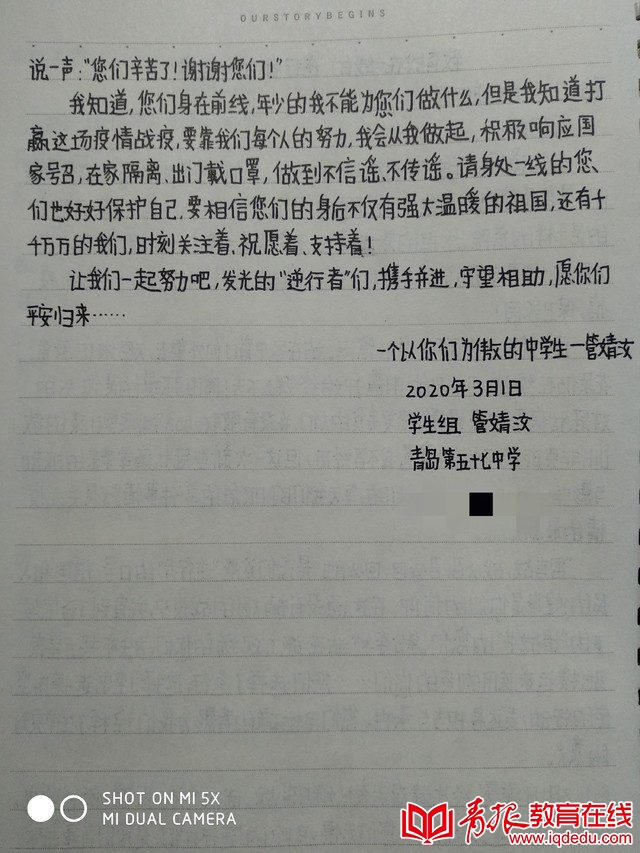 OURSTORYBEGINS
说一声:“您们辛苦了!谢谢您们!”
我知道,您们身在前线,年少的我不能为您们做什么,但是我知道打
赢这场疫情战疫,要靠我们每个人的努力,我会从我做起,积极响应国
家号召,在家隔离、出门戴口罩,做到不信谣、不传谣。请身处一线的您、
们也好好保护自己,要相信您们的身后不仅有强大温暖的祖国,还有千
千万万的我们,时刻关注着、祝愿着、支持着!
让我们一起努力吧,发光的“逆行者”们,携手并进,守望相助,愿你们
平安归来……
一个以你们为傲的中学生—管婧汝
2020年3月1日
学生组 管婧汝
青岛第五十七中学
SHOT ON MI 5X
MI DUAL CAMERA
青报教育在线
www.iqdedu.com